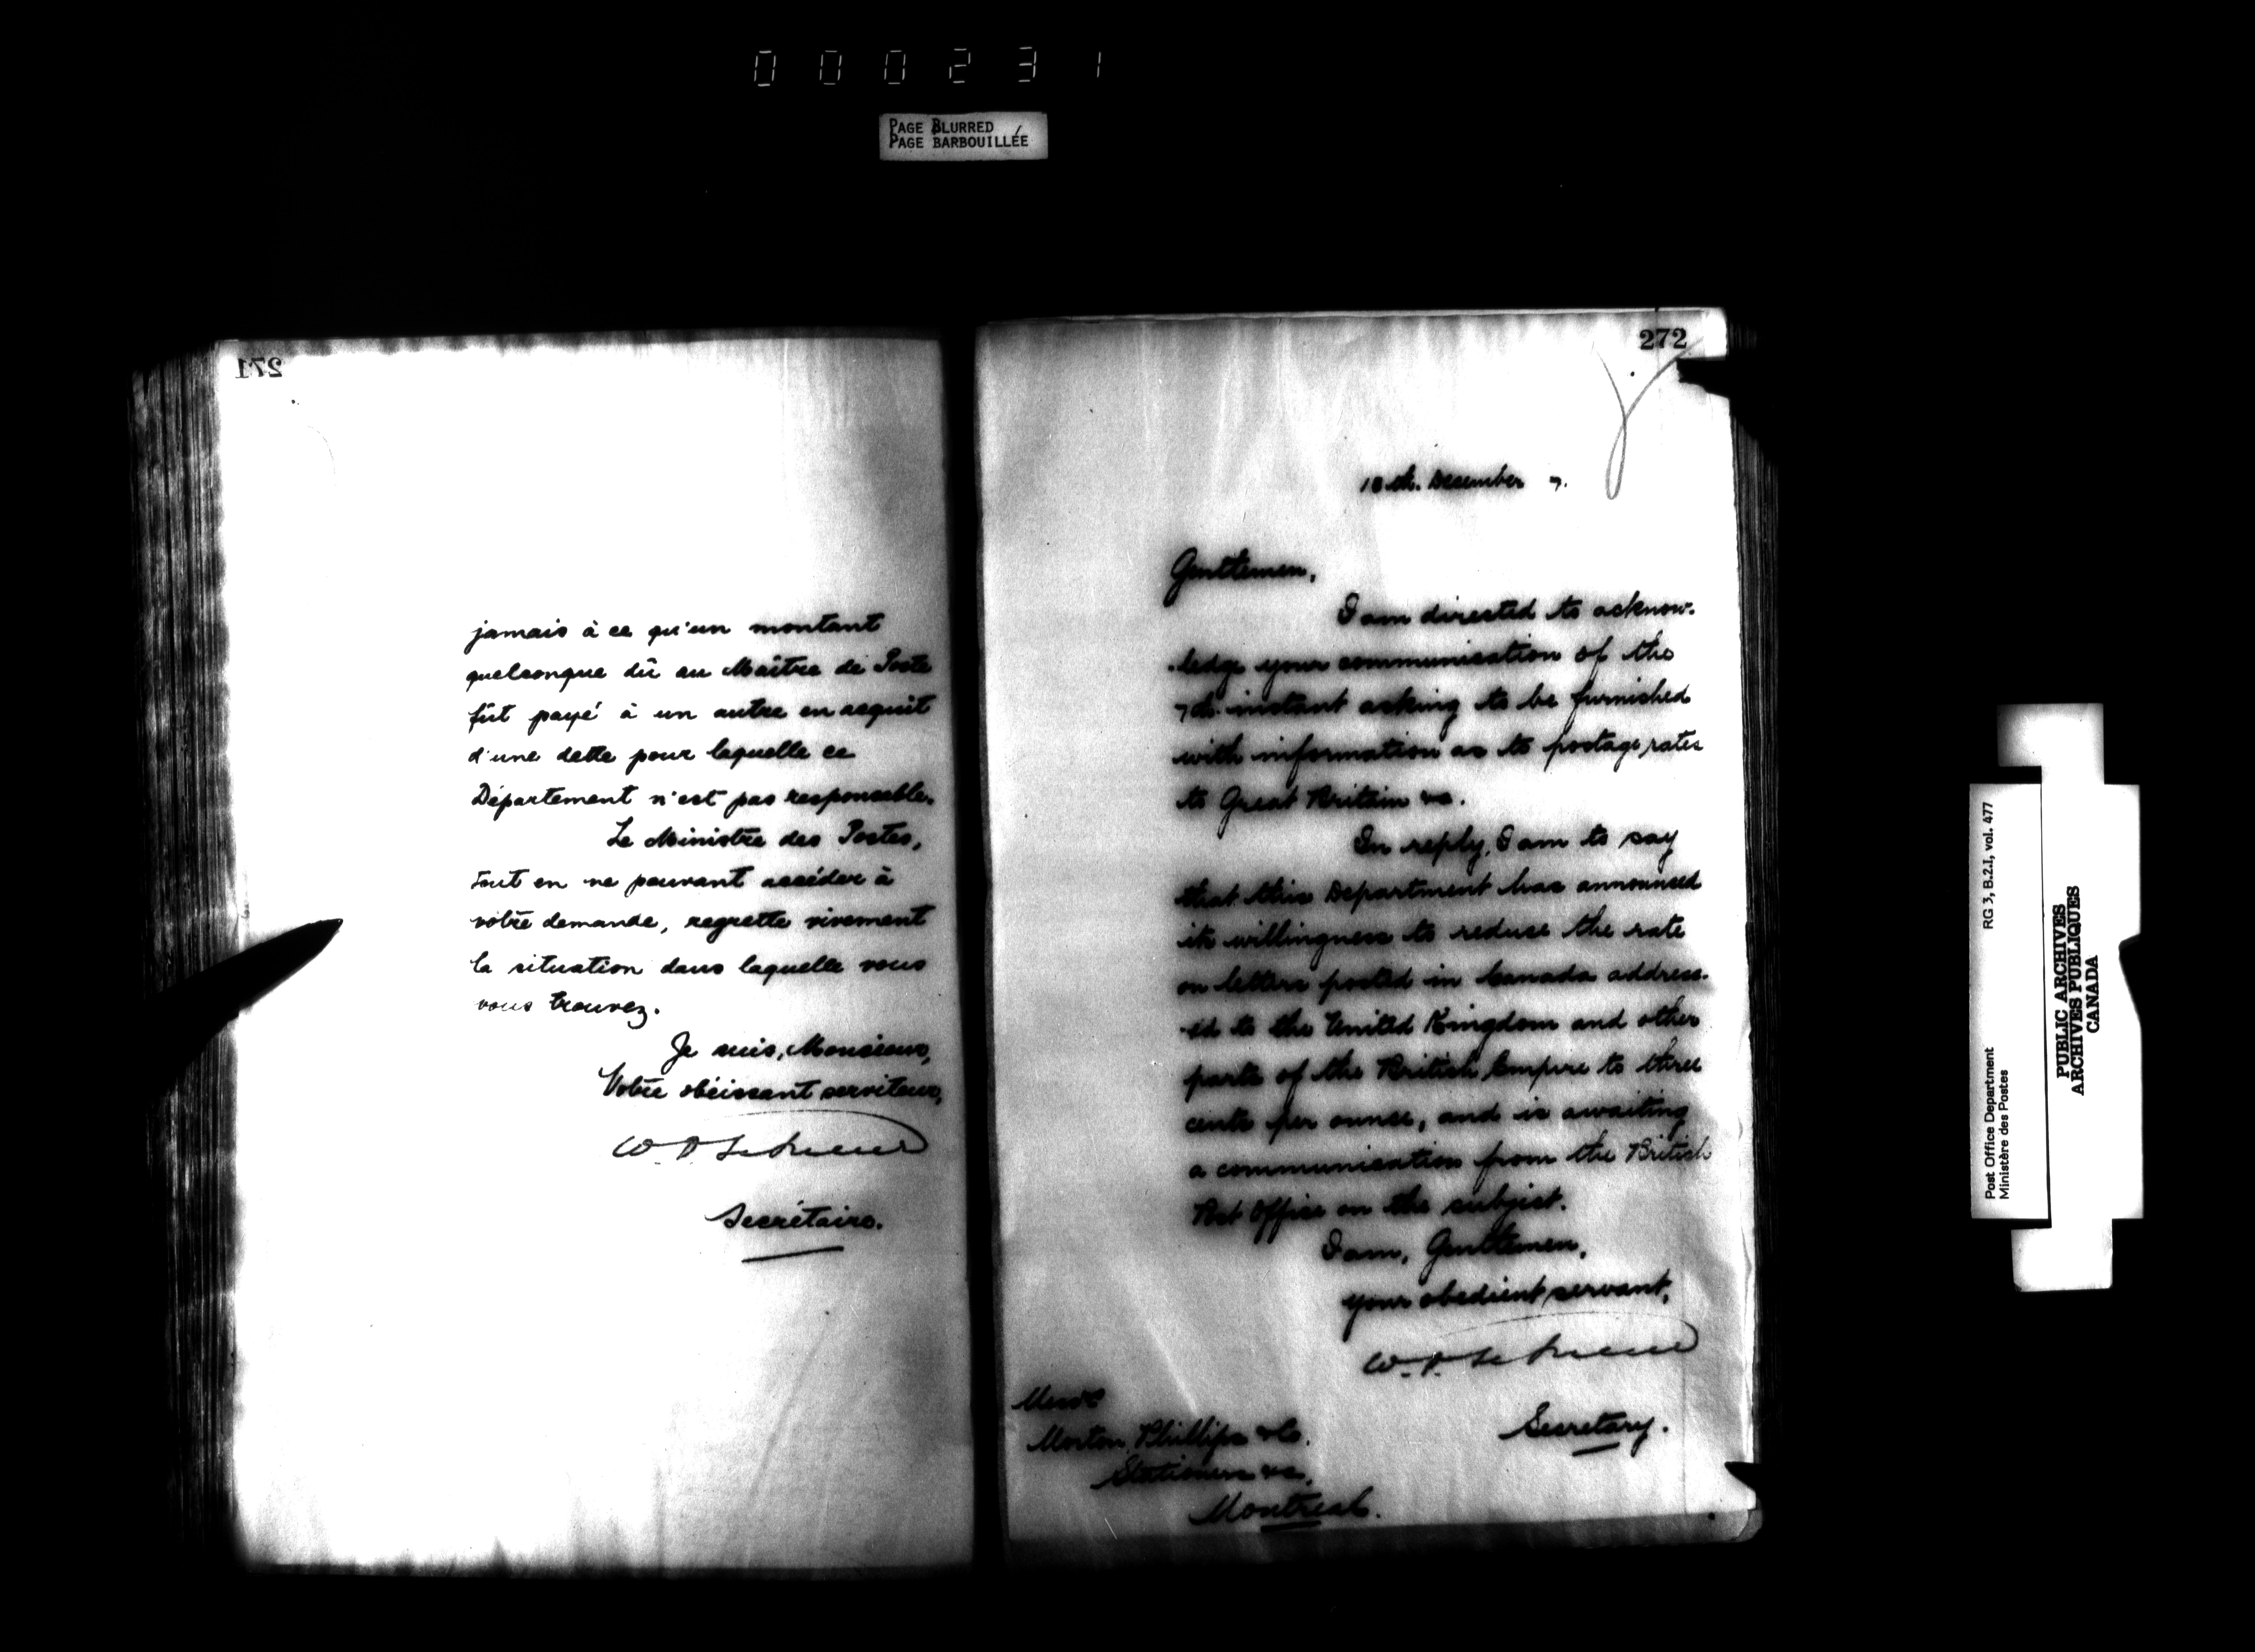 000231
PAGE BLURRED
PAGE BARBOUILLÉE
271
jamais à ce qu'un montant
quelconque dû au Maître de Poste
fût payé à un autre en acquit
d'une dette pour laquelle ce
Département n'est pas responsable.
Le Ministre des Postes,
tout en ne pouvant accéder à
votre demande, regrette vivement
la situation dans laquelle vous
vous trouvez.
Je suis, Monsieur,
Votre obéissant serviteur,
Secrétaire.
272
10th. December 7.
Gentlemen,
I am directed to acknow-
-ledge your communication of the
7th. instant asking to be furnished
with information as to postage rates
to Great Britain &c.
In reply, I am to say
that this Department has announced
its willingness to reduce the rate
on letters posted in Canada address-
-ed to the United Kingdom and other
parts of the British Empire to three
cents per ounce, and is awaiting
a communication from the British
Post Office on the subject.
I am, Gentlemen,
your obedient servant,
Secretary.
Messrs
Morton, Phillips & Co.
Stationers &c.
Montreal.
RG 3, B.2.I, vol. 477
Post Office Department
Ministère des Postes
PUBLIC ARCHIVES
ARCHIVES PUBLIQUES
CANADA